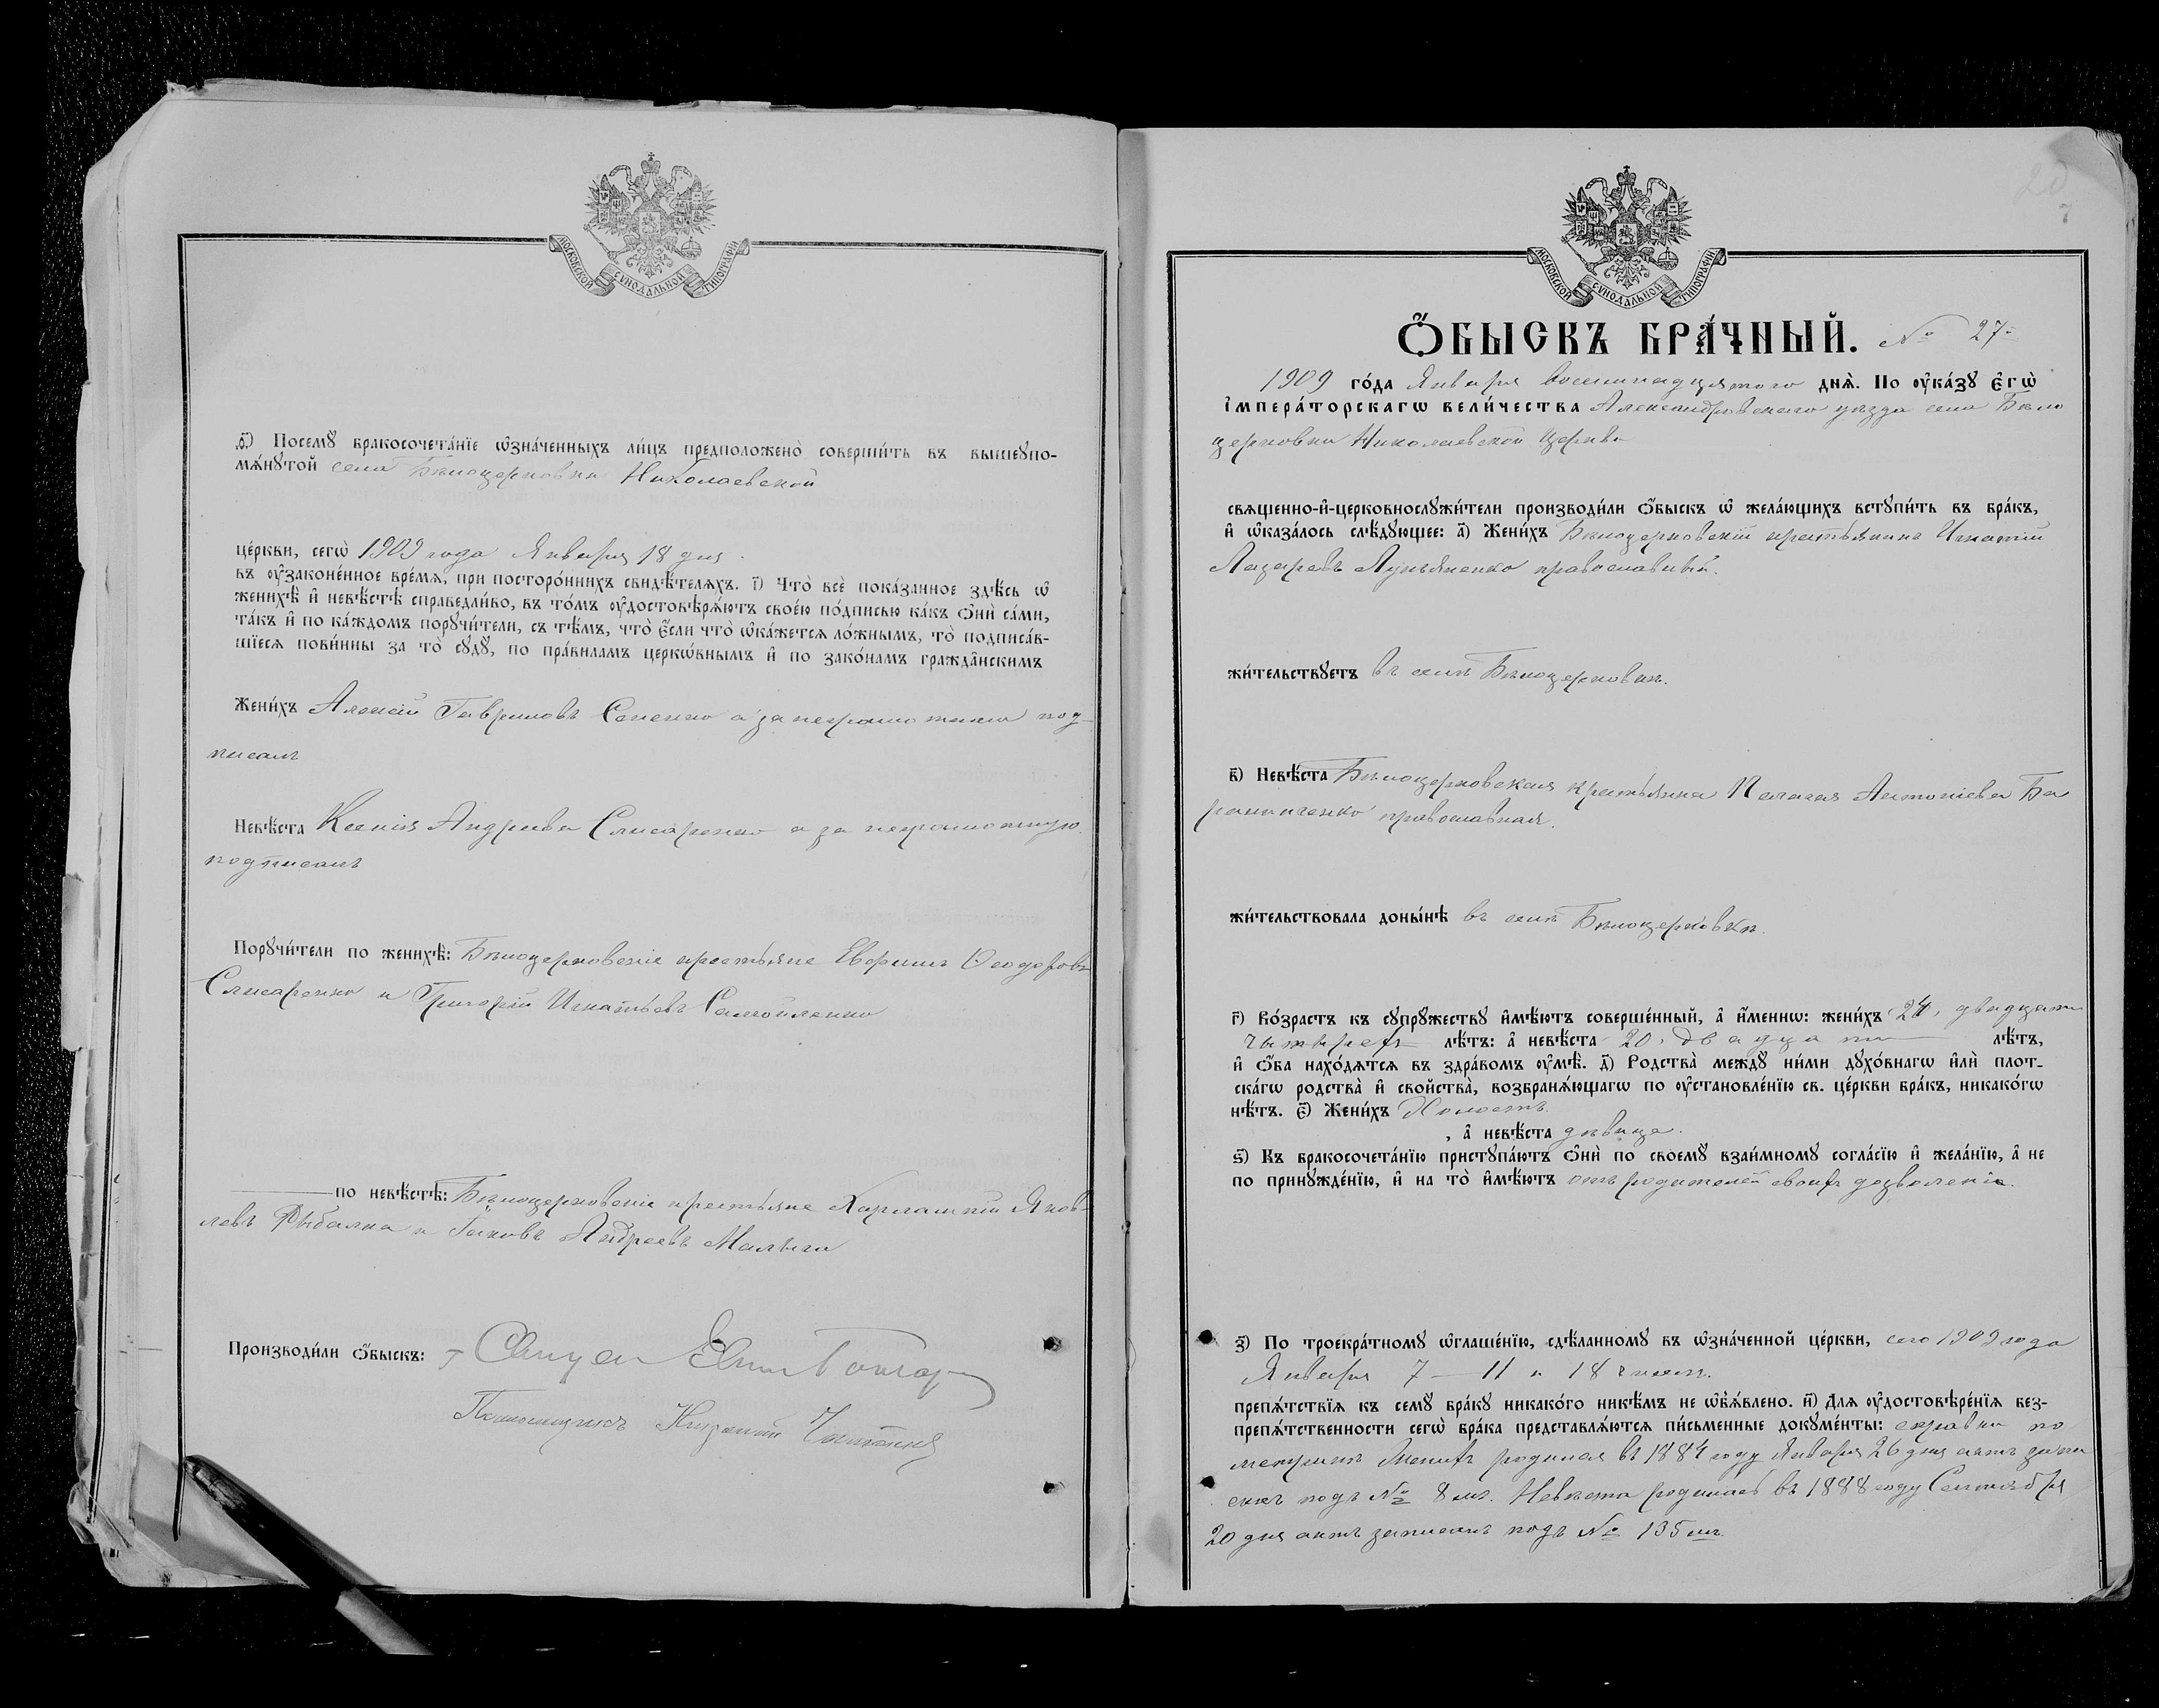 МОСКОВСКОЙ СѴНОДАЛЬНОЙ ТИПОГРАФІИ
ѳ҃) Посемꙋ̀ бракосочета́нїе ѡ҆зна́ченныхъ ли́цъ предположено̀ соверши́ть въ вышеꙋпо-
мѧ́нꙋтой села Бѣлоцерковки Николаевской
це́ркви, сегѡ̀ 1909 года Января 18 дня.
въ ᲂу҆законе́нное вре́мѧ, при посторо́ннихъ свидѣ́телѧхъ. і҃) Что̀ всѐ пока́занное здѣ́сь ѡ҆
женихѣ̀ и҆ невѣ́стѣ справедли́во, въ то́мъ ᲂу҆достовѣрѧ́ютъ свое́ю по́дписью ка́къ ѻ҆нѝ са́ми,
та́къ и҆ по ка́ждомъ порꙋчи́тели, съ тѣ́мъ, что̀ є҆́сли что̀ ѡ҆ка́жетсѧ ло́жнымъ, то̀ подписа́в-
шїесѧ пови́нны за то̀ сꙋдꙋ̀, по пра́виламъ церкѡ́внымъ и҆ по зако́намъ гражда̑нскимъ
Жени́хъ Алексій Гавриловъ Сененко а за неграмотнаго под-
писалъ
Невѣ́ста Ксенія Андреева Слисаренко а за неграмотную
подписалъ
Порꙋчи́тели по женихѣ̀: Бѣлоцерковскіе крестьяне Ефремъ Ѳеодоровъ
Слисаренко и Григорій Игнатьевъ Самойленко
по невѣ́стѣ: Бѣлоцерковскіе крестьяне Харлампій Яков-
левъ Рыбалка и Іаковъ Андреевъ Малыга
Производи́ли ѻ҆́быскъ:
МОСКОВСКОЙ СѴНОДАЛЬНОЙ ТИПОГРАФІИ
20
7
Ѻ҆́БЫСКЪ БРА́ЧНЫЙ. № 27
1909 го́да Января восемнадцятого днѧ̀. По ᲂу҆ка́зꙋ є҆гѡ̀
і҆мпера́торскагѡ вели́чества Александровскаго уѣзда села Бѣло
церковки Николаевской церкви
свѧщенно-и҆-церковнослꙋжи́тели производи́ли ѻ҆́быскъ ѡ҆ жела́ющихъ встꙋпи́ть въ бра́къ,
и҆ ѡ҆каза́лось слѣ́дꙋющее: а҃) Жени́хъ Бѣлоцерковскій крестьянинъ Игнатій
Лазаревъ Лукьяненко православный.
жи́тельствꙋетъ въ селѣ Бѣлоцерковкѣ.
в҃) Невѣ́ста Бѣлоцерковская крестьянка Пелагея Антоніева Ба
православная.
жи́тельствовала доны́нѣ въ селѣ Бѣлоцерковкѣ.
г҃) Во́зрастъ къ сꙋпрꙋ́жествꙋ и҆мѣ́ютъ соверше́нный, а҆ и҆́меннѡ: жени́хъ 24, двадцати
четырехъ лѣ́тъ: а҆ невѣ́ста 20, двадцати лѣ́тъ,
и҆ ѻ҆́ба нахо́дѧтсѧ въ здра́вомъ ᲂу҆мѣ̀. д҃) Родства̀ междꙋ̀ ни́ми дꙋхо́внагѡ и҆лѝ плот-
ска́гѡ родства̀ и҆ сво́йства̀, возбранѧ́ющагѡ по ᲂу҆становле́нїю св. це́ркви бра́къ, никако́гѡ
нѣ́тъ. є҃) Жени́хъ Холостъ.
, а҆ невѣ́ста дѣвица.
ѕ҃) Къ бракосочета́нїю пристꙋпа́ютъ ѻ҆нѝ по своемꙋ̀ взаи́мномꙋ согла́сїю и҆ жела́нїю, а҆ не
по принꙋжде́нїю, и҆ на то̀ и҆мѣ́ютъ отъ родителей своихъ дозволеніе.
з҃) По троекра́тномꙋ ѡ҆глаше́нїю, сдѣ́ланномꙋ въ ѡ҆зна́ченной це́ркви, сего 1909 года
Января 7 — 11 и 18 числъ.
препѧ́тствїѧ къ семꙋ̀ бра́кꙋ никако́го никѣ́мъ не ѡ҆б̾ѧ́влено. и҃) Длѧ ᲂу҆достовѣре́нїѧ без-
препѧ́тственности сегѡ̀ бра́ка представлѧ́ютсѧ пи́сьменные докꙋме́нты: справки по
метрикѣ Женихъ родился въ 1884 году Января 26 дня актъ запи
санъ подъ № 8 мъ. Невѣста родилась въ 1888 году Сентября
20 дня актъ записанъ подъ № 135 мъ.